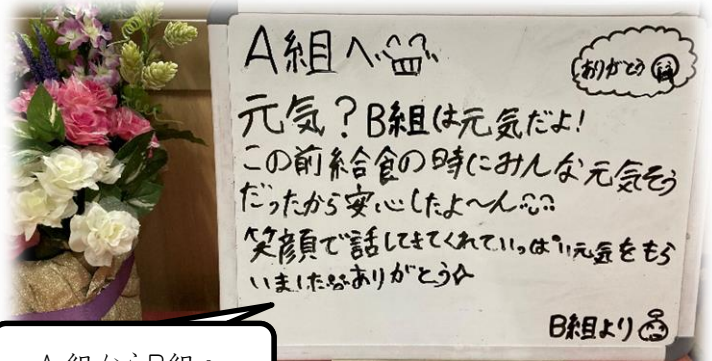 A組へ
ありがとう
元気?B組は元気だよ!
この前給食の時にみんな元気そう
だったから安心したよ〜ん
笑顔で話してきてくれていっぱい元気をもら
いました ありがとう☆
B組より
A組からB組へ